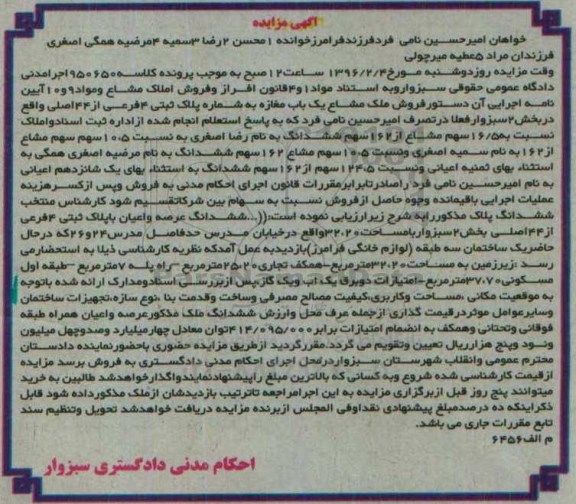 آگهی مزایده
خواهان امیرحسین نامی فردفرزندفرامرزخوانده ۱محسن ۲رضا ۳سمیه ۴مرضیه همگی اصغری
فرزندان مراد ۵عطیه میرچولی
وقت مزایده روزدوشنبه مورخ۱۳۹۶/۲/۴ ساعت۱۲صبح به موجب پرونده کلاسه۹۵۰۶۵۰اجرامدنی
دادگاه عمومی حقوقی سبزواروبه استناد مواد۱و۴قانون افراز وفروش املاک مشاع ومواد۹و۱۰آیین
نامه اجرایی آن دستورفروش ملک مشاع یک باب مغازه به شماره پلاک ثبتی ۴فرعی از۴۴اصلی واقع
دربخش۲سبزوارفعلا درتصرف امیرحسین نامی فرد که به پاسخ استعلام انجام شده ازاداره ثبت اسنادواملاک
نسبت به۱۶/۵سهم مشاع از۱۶۲سهم ششدانگ به نام رضا اصغری به نسبت ۱۰،۵سهم سهم مشاع
از۱۶۲به نام سمیه اصغری ونسبت ۱۰،۵سهم مشاع ۱۶۲سهم ششدانگ به نام مرضیه اصغری همگی به
استثناء بهای ثمنیه اعیانی ونسبت ۱۲۴،۵سهم از۱۶۲سهم ششدانگ به استثناء بهای یک شانزدهم اعیانی
به نام امیرحسین نامی فرد راصادرتابرابرمقررات قانون اجرای احکام مدنی به فروش وپس ازکسرهزینه
عملیات اجرایی باقیمانده وجوه حاصل ازفروش نسبت به سهام بین شرکاتقسیم شود کارشناس منتخب
ششدانگ پلاک مذکوررابه شرح زیرارزیابی نموده است:((...ششدانگ عرصه واعیان باپلاک ثبتی ۴فرعی
از۴۴اصلی بخش۲سبزواربامساحت۳۲،۲۰واقع درخیابان مدرس حدفاصل مدرس۲۴و۲۶که درحال
حاضریک ساختمان سه طبقه (لوازم خانگی فرامرز)بازدیدبه عمل آمدکه نظریه کارشناسی ذیلا به استحضارمی
رسد :زیرزمین به مساحت۳۲،۲۰مترمربع-همکف تجاری۲۵،۲۰مترمربع -راه پله ۷مترمربع -طبقه اول
مسکونی۳۷،۷۰مترمربع-امتیازات دوبرق یک آب ویک گاز.پس ازبررسی اسنادومدارک ارائه شده باتوجه
به موقعیت مکانی ،مساحت وکاربری،کیفیت مصالح مصرفی وساخت وقدمت بنا ،نوع سازه،تجهیزات ساختمان
وسایرعوامل موثردرقیمت گذاری ازجمله عرف محل وارزش ششدانگ ملک مذکورعرصه واعیان همراه طبقه
فوقانی وتحتانی وهمکف به انضمام امتیازات برابر ۴۱۴/۰۹۵/۰۰۰توان معادل چهارمیلیارد وصدوچهل میلیون
ونود وپنج هزارریال تعیین وتقویم می گردد.مقررگردید ازطریق مزایده حضوری باحضورنماینده دادستان
محترم عمومی وانقلاب شهرستان سبزواردرمحل اجرای احکام مدنی دادگستری به فروش برسد مزایده
ازقیمت کارشناسی شده شروع وبه کسانی که بالاترین مبلغ راپیشنهادنمایندواگذارخواهدشد طالبین به خرید
میتوانند پنج روز قبل ازبرگزاری مزایده به این اجرامراجعه تاترتیب بازدیدشان ازملک مذکورداده شود قابل
ذکراینکه ده درصدمبلغ پیشنهادی نقداوفی المجلس ازبرنده مزایده دریافت خواهدشد تحویل وتنظیم سند
تابع مقررات جاری می باشد.
م الف۶۴۵۶
احکام مدنی دادگستری سبزوار